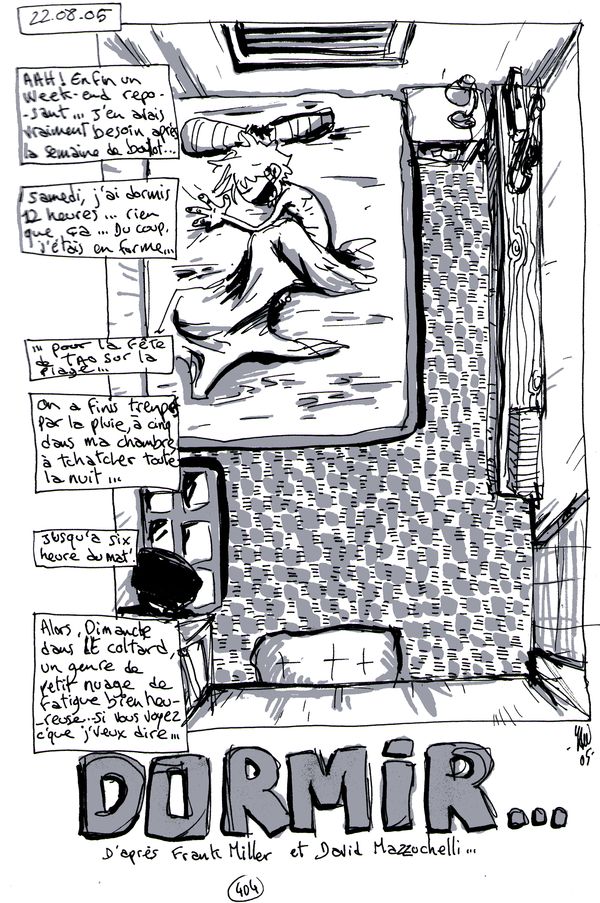 22.08.05
AAH! Enfin un
week-end repo-
-sant... J'en avais
vraiment besoin après
la semaine de boulot...
Samedi, j'ai dormis
12 heures... rien
que ça... Du coup,
j'étais en forme...
... pour la fête
de TAO sur la
plage...
On a finis trempés
par la pluie, à cinq
dans ma chambre
à tchatcher toute
la nuit...
Jusqu'à six
heure du mat'.
Alors, Dimanche
dans le coltard,
un genre de
petit nuage de
fatigue bien heu-
-reuse... si vous voyez
c'que j'veux dire...
05
DORMiR...
D'après Frank Miller et David Mazzuchelli...
404